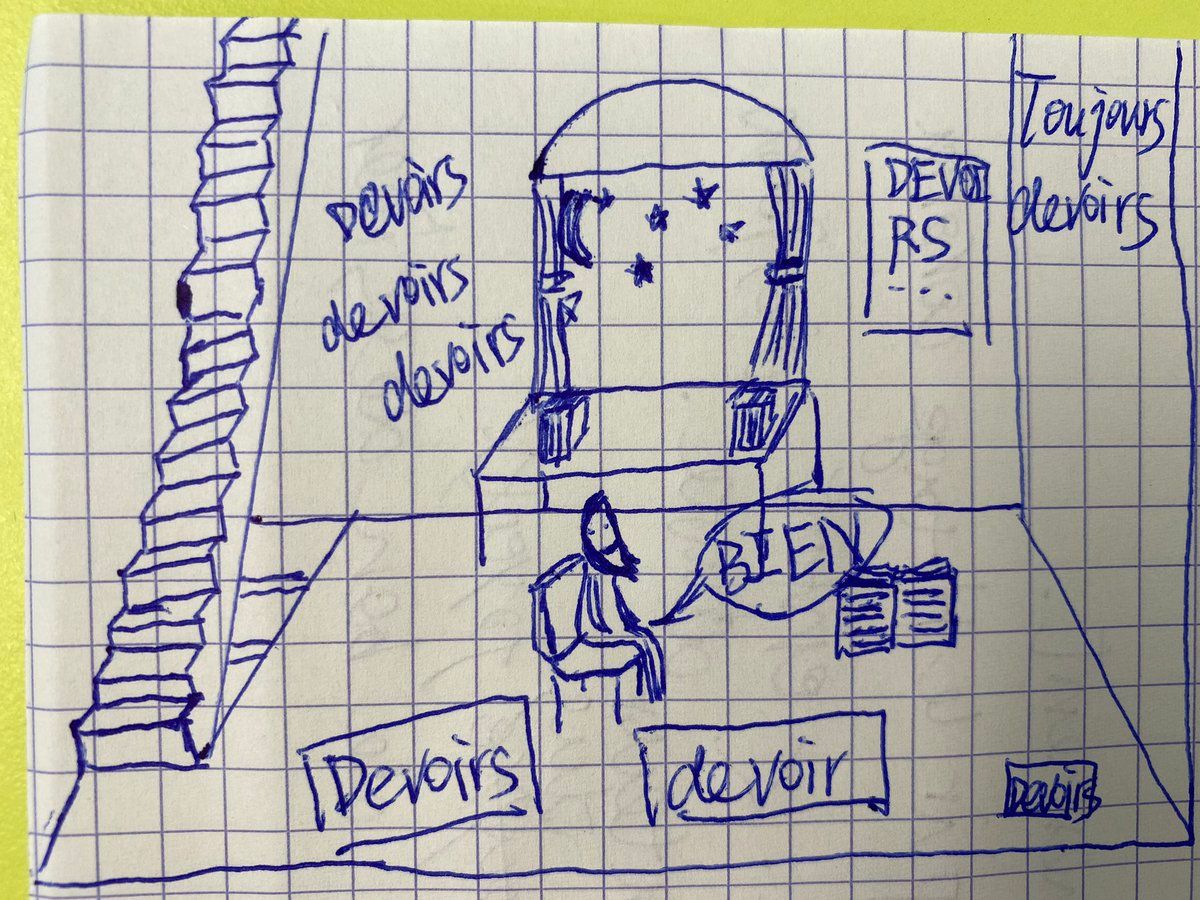 Toujours
devoirs
Devoirs
devoirs
devoirs
DEVOI
RS
...
BIEN
Devoirs
devoir
Devoirs